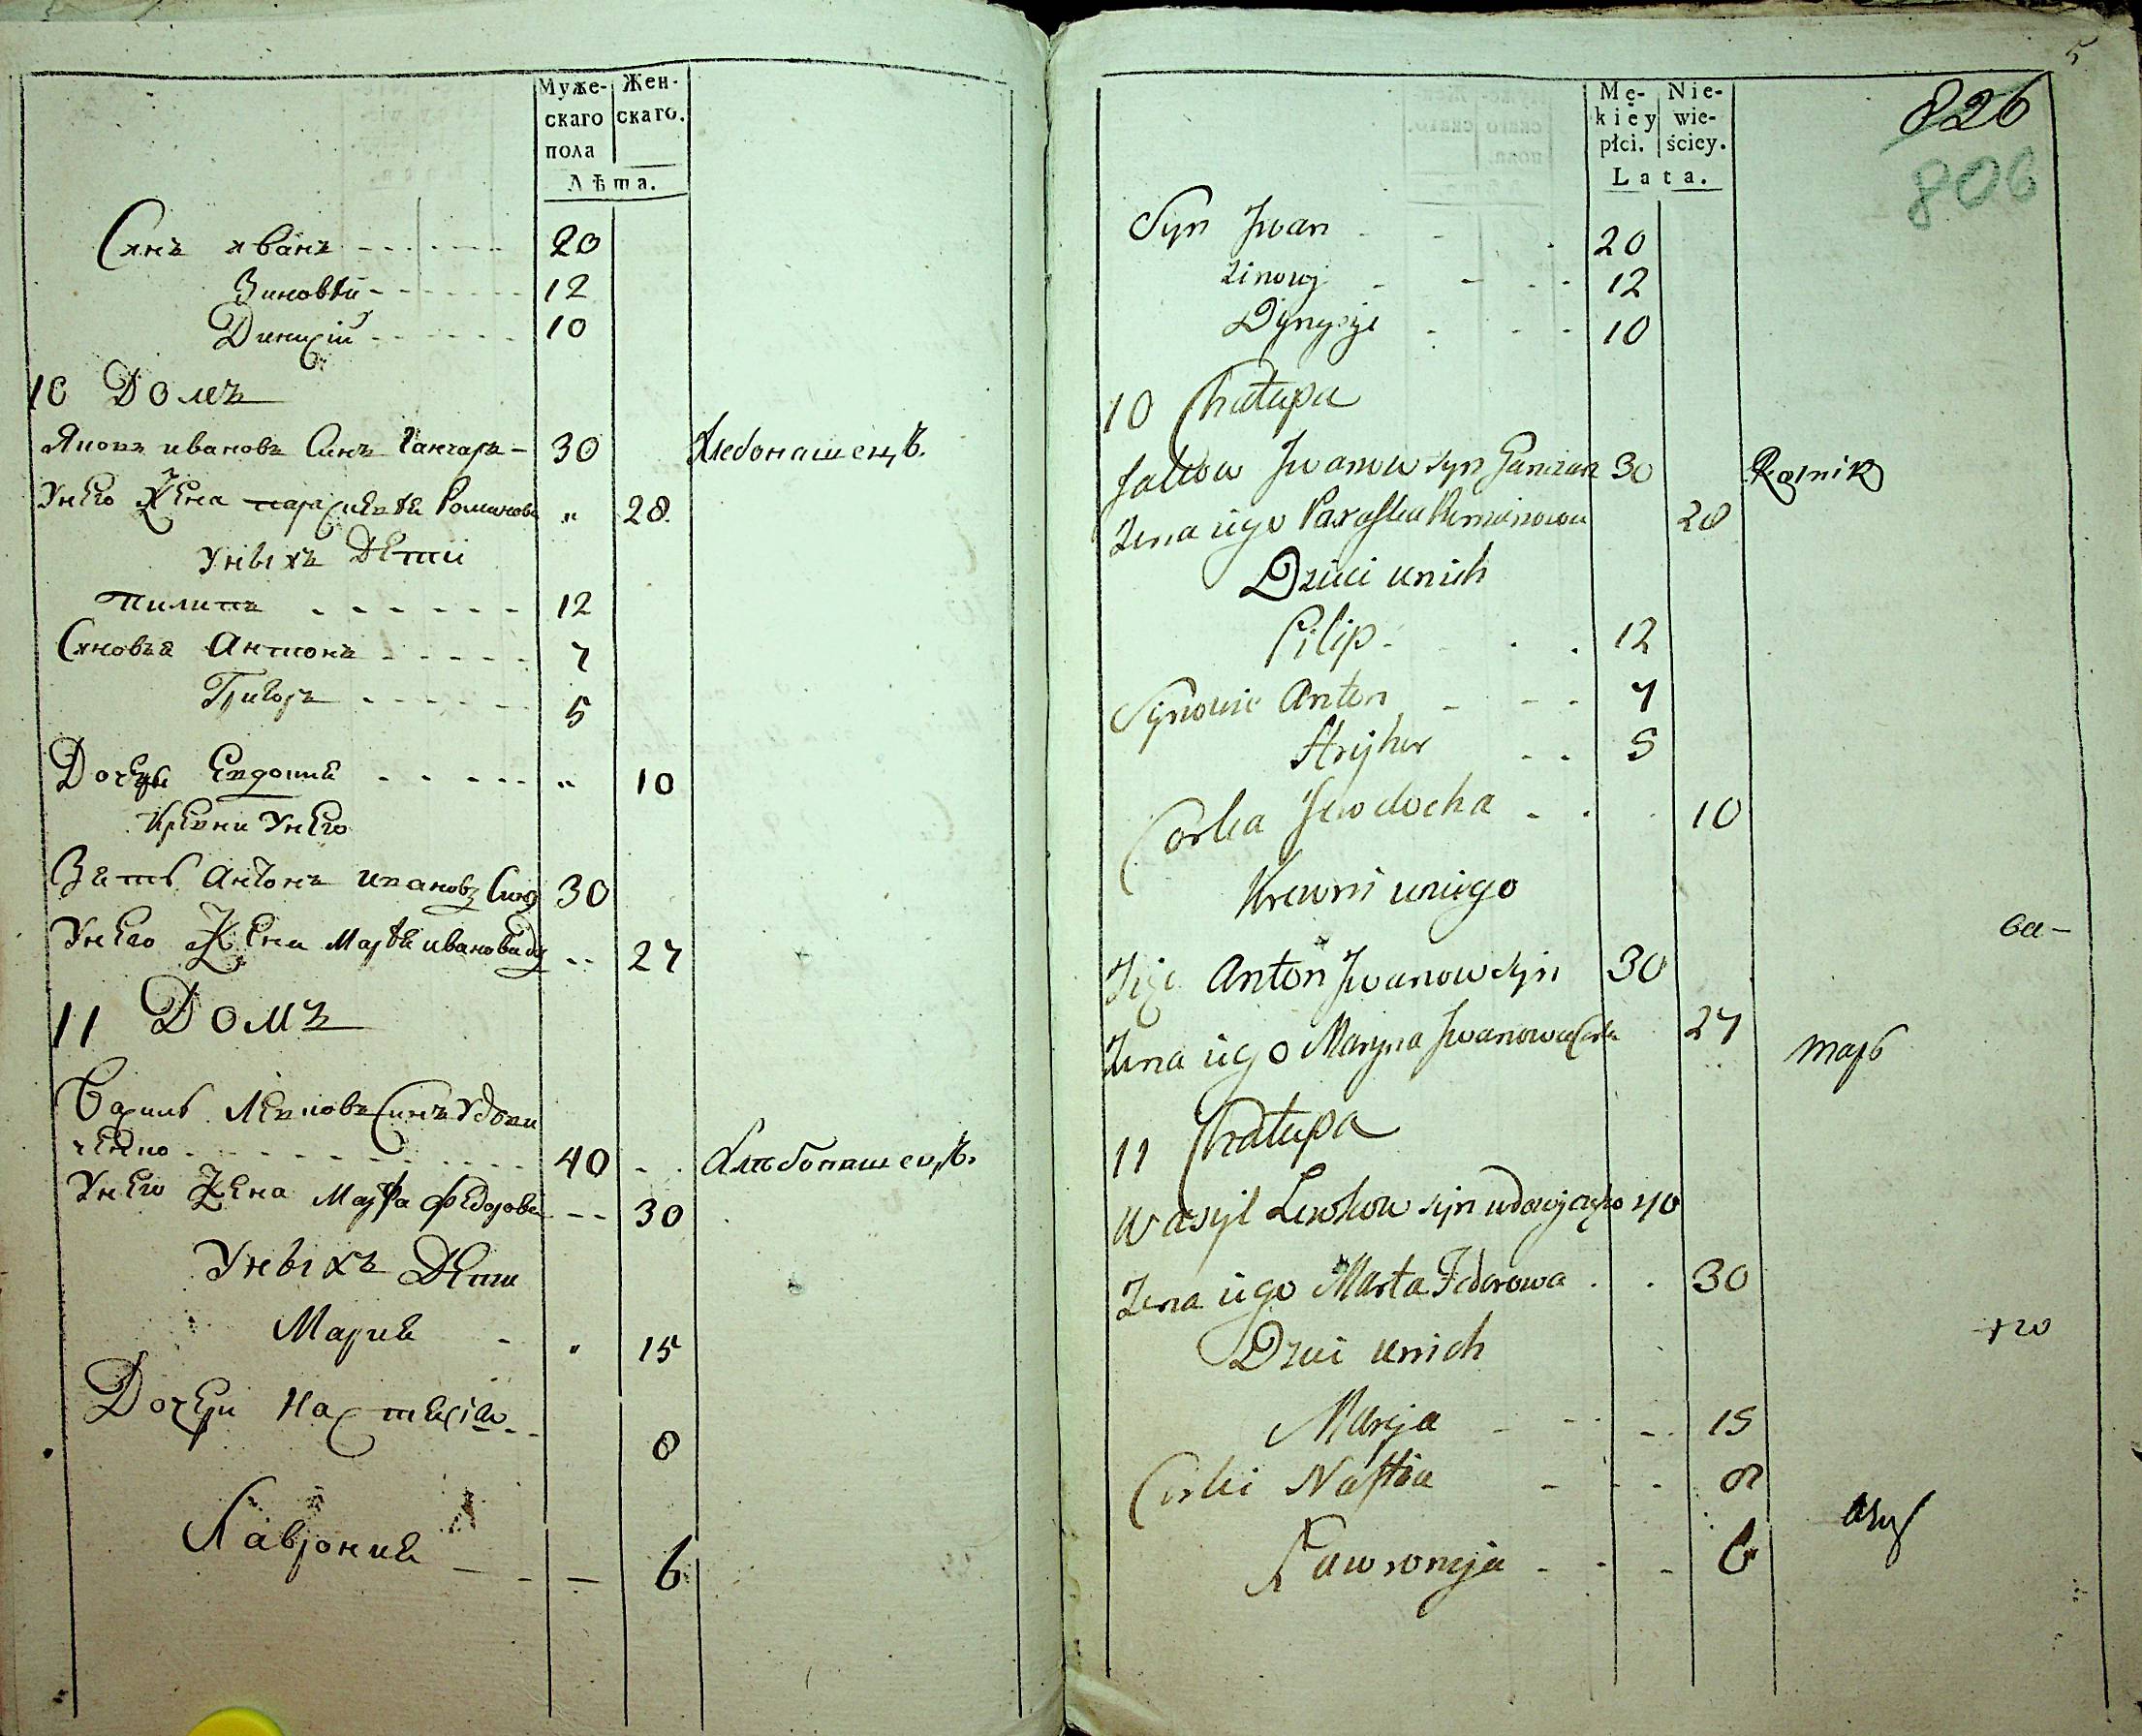 Муже-
скаго
пола
Жен-
скаго.
Лѣта.
Синъ иванъ 20
Зиновѣй 12
Динисій 10
10 Домъ
Яковъ ивановъ Синъ Ганчаръ 30 Хлебопашецъ.
Унего Жена параскевѣя Романова " 28
Уныхъ Дети
пилипъ 12
Синовъя Антонъ 7
Григоръ 5
Дочеръ Евдокия " 10
Кревни Унего
Зять Антонъ ивановъ Синъ 30
Унего Жена ивановая 27
11 Домъ
Василь Левковъ Синъ Удови
ченко 40 Хлѣбопашецъ.
Унего Жена Марфа Федорова 30
Унихъ Дети
Мария " 15
Дочери Настасія 8
Лаврония 6
5
Mę-
kiey
płci.
Nie-
wie-
ściey.
Lata.
826
806
Syn Jwan 20
Zinowij 12
Dynyzyi 10
10 Chatupa
Jakow Jwanow syn Ganczar 30 Rolnik
Zena iego Paraska Romanowa 28
Dzieci unich
Pilip 12
Synowie Anton 7
Hryhor 5
Corka Jewdocha 10
Krewni uniego
ва-
Zięć Anton Jwanow syn 30
Zena iego Maryna Jwanowa Corka 27
тарь
11 Chatupa
Wasyl Lewkow syn udowiczenko 40
Zena iego Marta Fedorowa 30
Dzieci unich
го
Marija 15
Corki Nastia 8
Ławronija 6